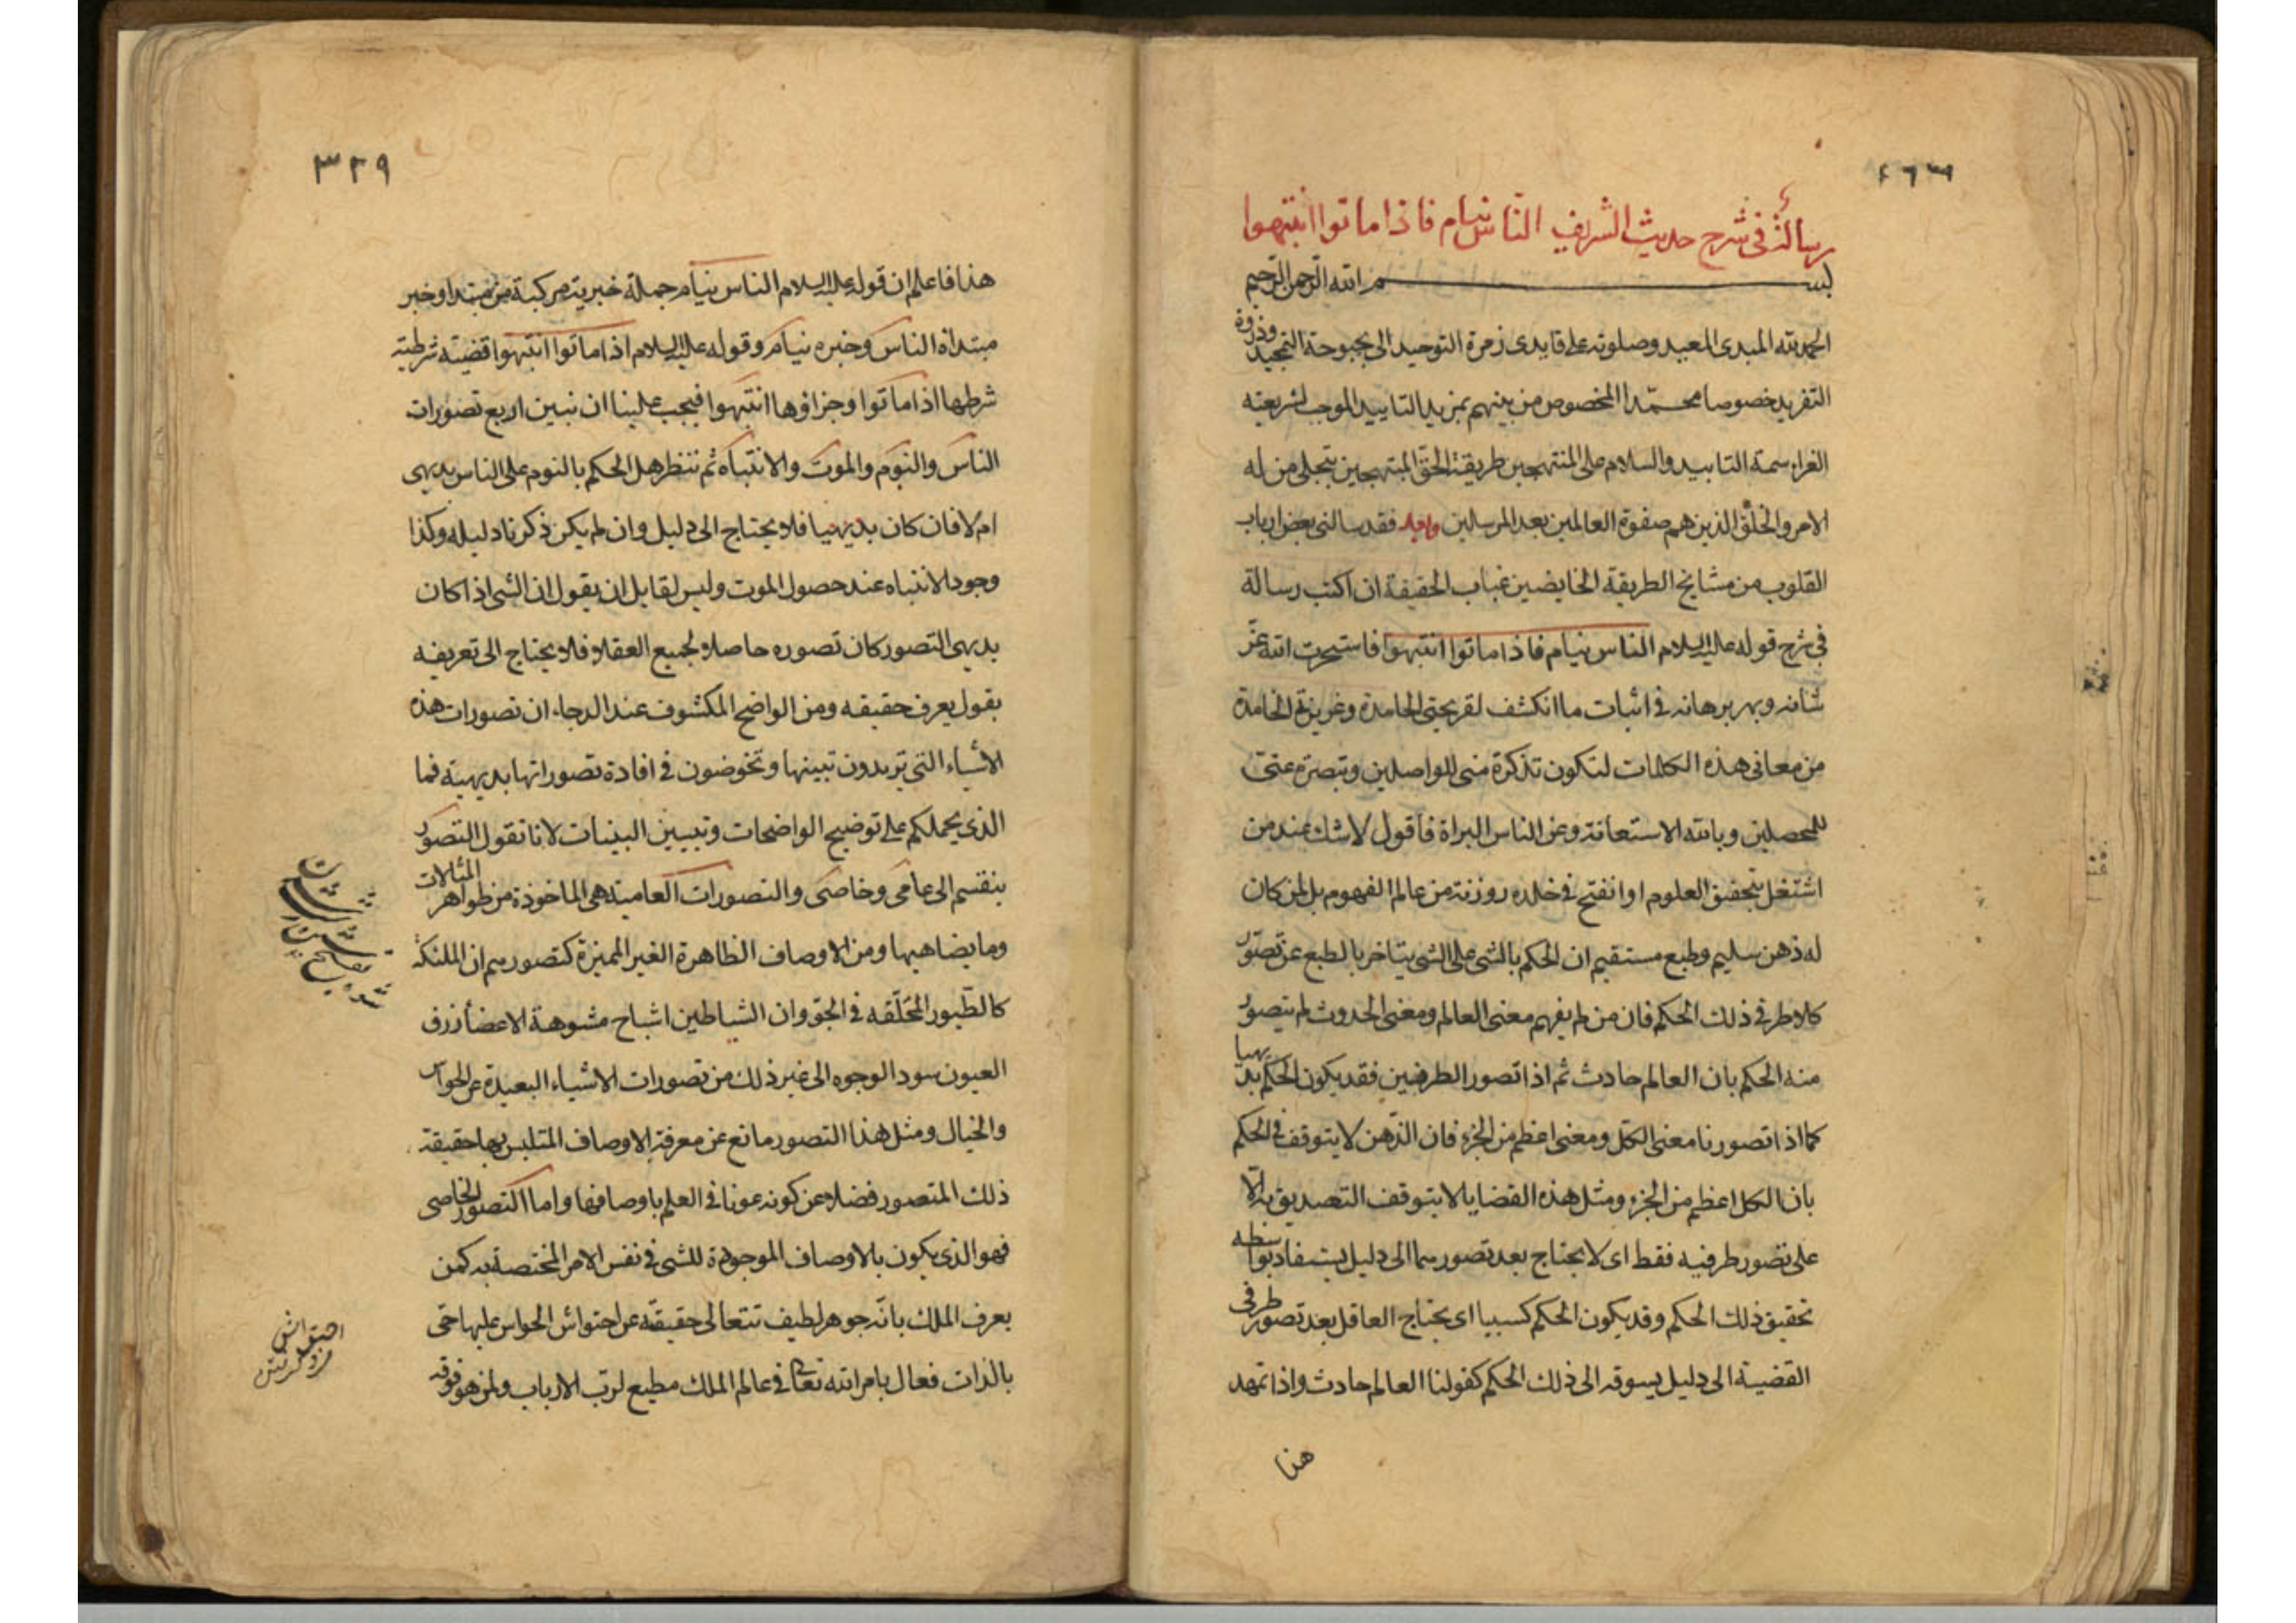 رسالة فی شرح حدیث الشریف الناس نیام فاذا ماتوا انتبهوا
بسم الله الرحمن الرحیم
الحمد لله المبدی المعید وصلوته علی قایدی زمرة التوحید الی بحبوحة التمجید وذروة
التفرید خصوصا محمدا المخصوص من بینهم بمزید التایید الموجب لشریعته
الغرا سمة التابید والسلام علی المنتهجین طریقة الحق المبتهجین بتجلی من له
الامر والخلق الذین هم صفوة العالمین بعد المرسلین وبعد فقد سالنی بعض ارباب
القلوب من مشایخ الطریقة الخایضین عباب الحقیقة ان اکتب رسالة
فی شرح قوله علیه السلام الناس نیام فاذا ماتوا انتبهوا فاستخرت الله عز
شانه وبهر برهانه فی اثبات ما انکشف لقریحتی الجامدة وغریزتی الخامدة
من معانی هذه الکلمات لتکون تذکرة منی للواصلین وتبصرة عنی
للمحصلین وبالله الاستعانة وعن الناس البراة فاقول لا شك عند من
اشتغل بتحقیق العلوم او انفتح فی خلده روزنة من عالم الفهوم بل لمن کان
له ذهن سلیم وطبع مستقیم ان الحکم بالشی علی الشی یتاخر بالطبع عن تصور
کلا طرفی ذلك الحکم فان من لم یفهم معنی العالم ومعنی الحدوث لم یتصور
منه الحکم بان العالم حادث ثم اذا تصور الطرفین فقد یکون الحکم بدیهیا
کما اذا تصورنا معنی الکل ومعنی اعظم من الجزء فان الذهن لا یتوقف فی الحکم
بان الکل اعظم من الجزء ومثل هذه القضایا لا یتوقف التصدیق به الا
علی تصور طرفیه فقط ای لا یحتاج بعد تصورهما الی دلیل یستفاد بواسطه
تحقیق ذلك الحکم وقد یکون الحکم کسبیا ای یحتاج العاقل بعد تصور طرفی
القضیة الی دلیل یسوقه الی ذلك الحکم کقولنا العالم حادث واذا تمهد
هذا
٣٢٩
هذا فاعلم ان قوله علیه السلام الناس نیام جملة خبریة مرکبة من مبتدا وخبر
مبتداه الناس وخبره نیام وقوله علیه السلام اذا ماتوا انتبهوا قضیة شرطیة
شرطها اذا ماتوا وجزاؤها انتبهوا فیجب علینا ان نبین اربع تصورات
الناس والنوم والموت والانتباه ثم ننظر هل الحکم بالنوم علی الناس بدیهی
ام لا فان کان بدیهیا فلا یحتاج الی دلیل وان لم یکن ذکرنا دلیله وکذا
وجود الانتباه عند حصول الموت ولیس لقایل ان یقول ان الشی اذا کان
بدیهی التصور کان تصوره حاصلا لجمیع العقلا فلا یحتاج الی تعریفه
بقول یعرف حقیقه ومن الواضح المکشوف عند الدجاء ان تصورات هذه
الاشیاء التی تریدون تبیینها وتخوضون فی افادة تصوراتها بدیهیة فما
الذی یحملکم علی توضیح الواضحات وتبیین البینات لانا نقول التصور
ینقسم الی عامی وخاصی والتصورات العامیة هی الماخوذة من ظواهر المثالات
وما یضاهیها ومن الاوصاف الظاهرة الغیر الممیزة کتصورهم ان الملئکة
کالطیور المحلقه فی الجو وان الشیاطین اشباح مشوهة الاعضا زرق
العیون سود الوجوه الی غیر ذلك من تصورات الاشیاء البعیدة عن الحواس
والخیال ومثل هذا التصور مانع عن معرفة الاوصاف المتلبس بها حقیقة
ذلك المتصور فضلا عن کونه عونا فی العلم باوصافها واما التصور الخاصی
فهو الذی یکون بالاوصاف الموجودة للشی فی نفس الامر المختصة به کمن
یعرف الملك بانه جوهر لطیف تتعالی حقیقته عن احتواش الحواس علیها حی
بالذات فعال بامر الله تعالی فی عالم الملك مطیع لرب الارباب ولمن هو فوقه